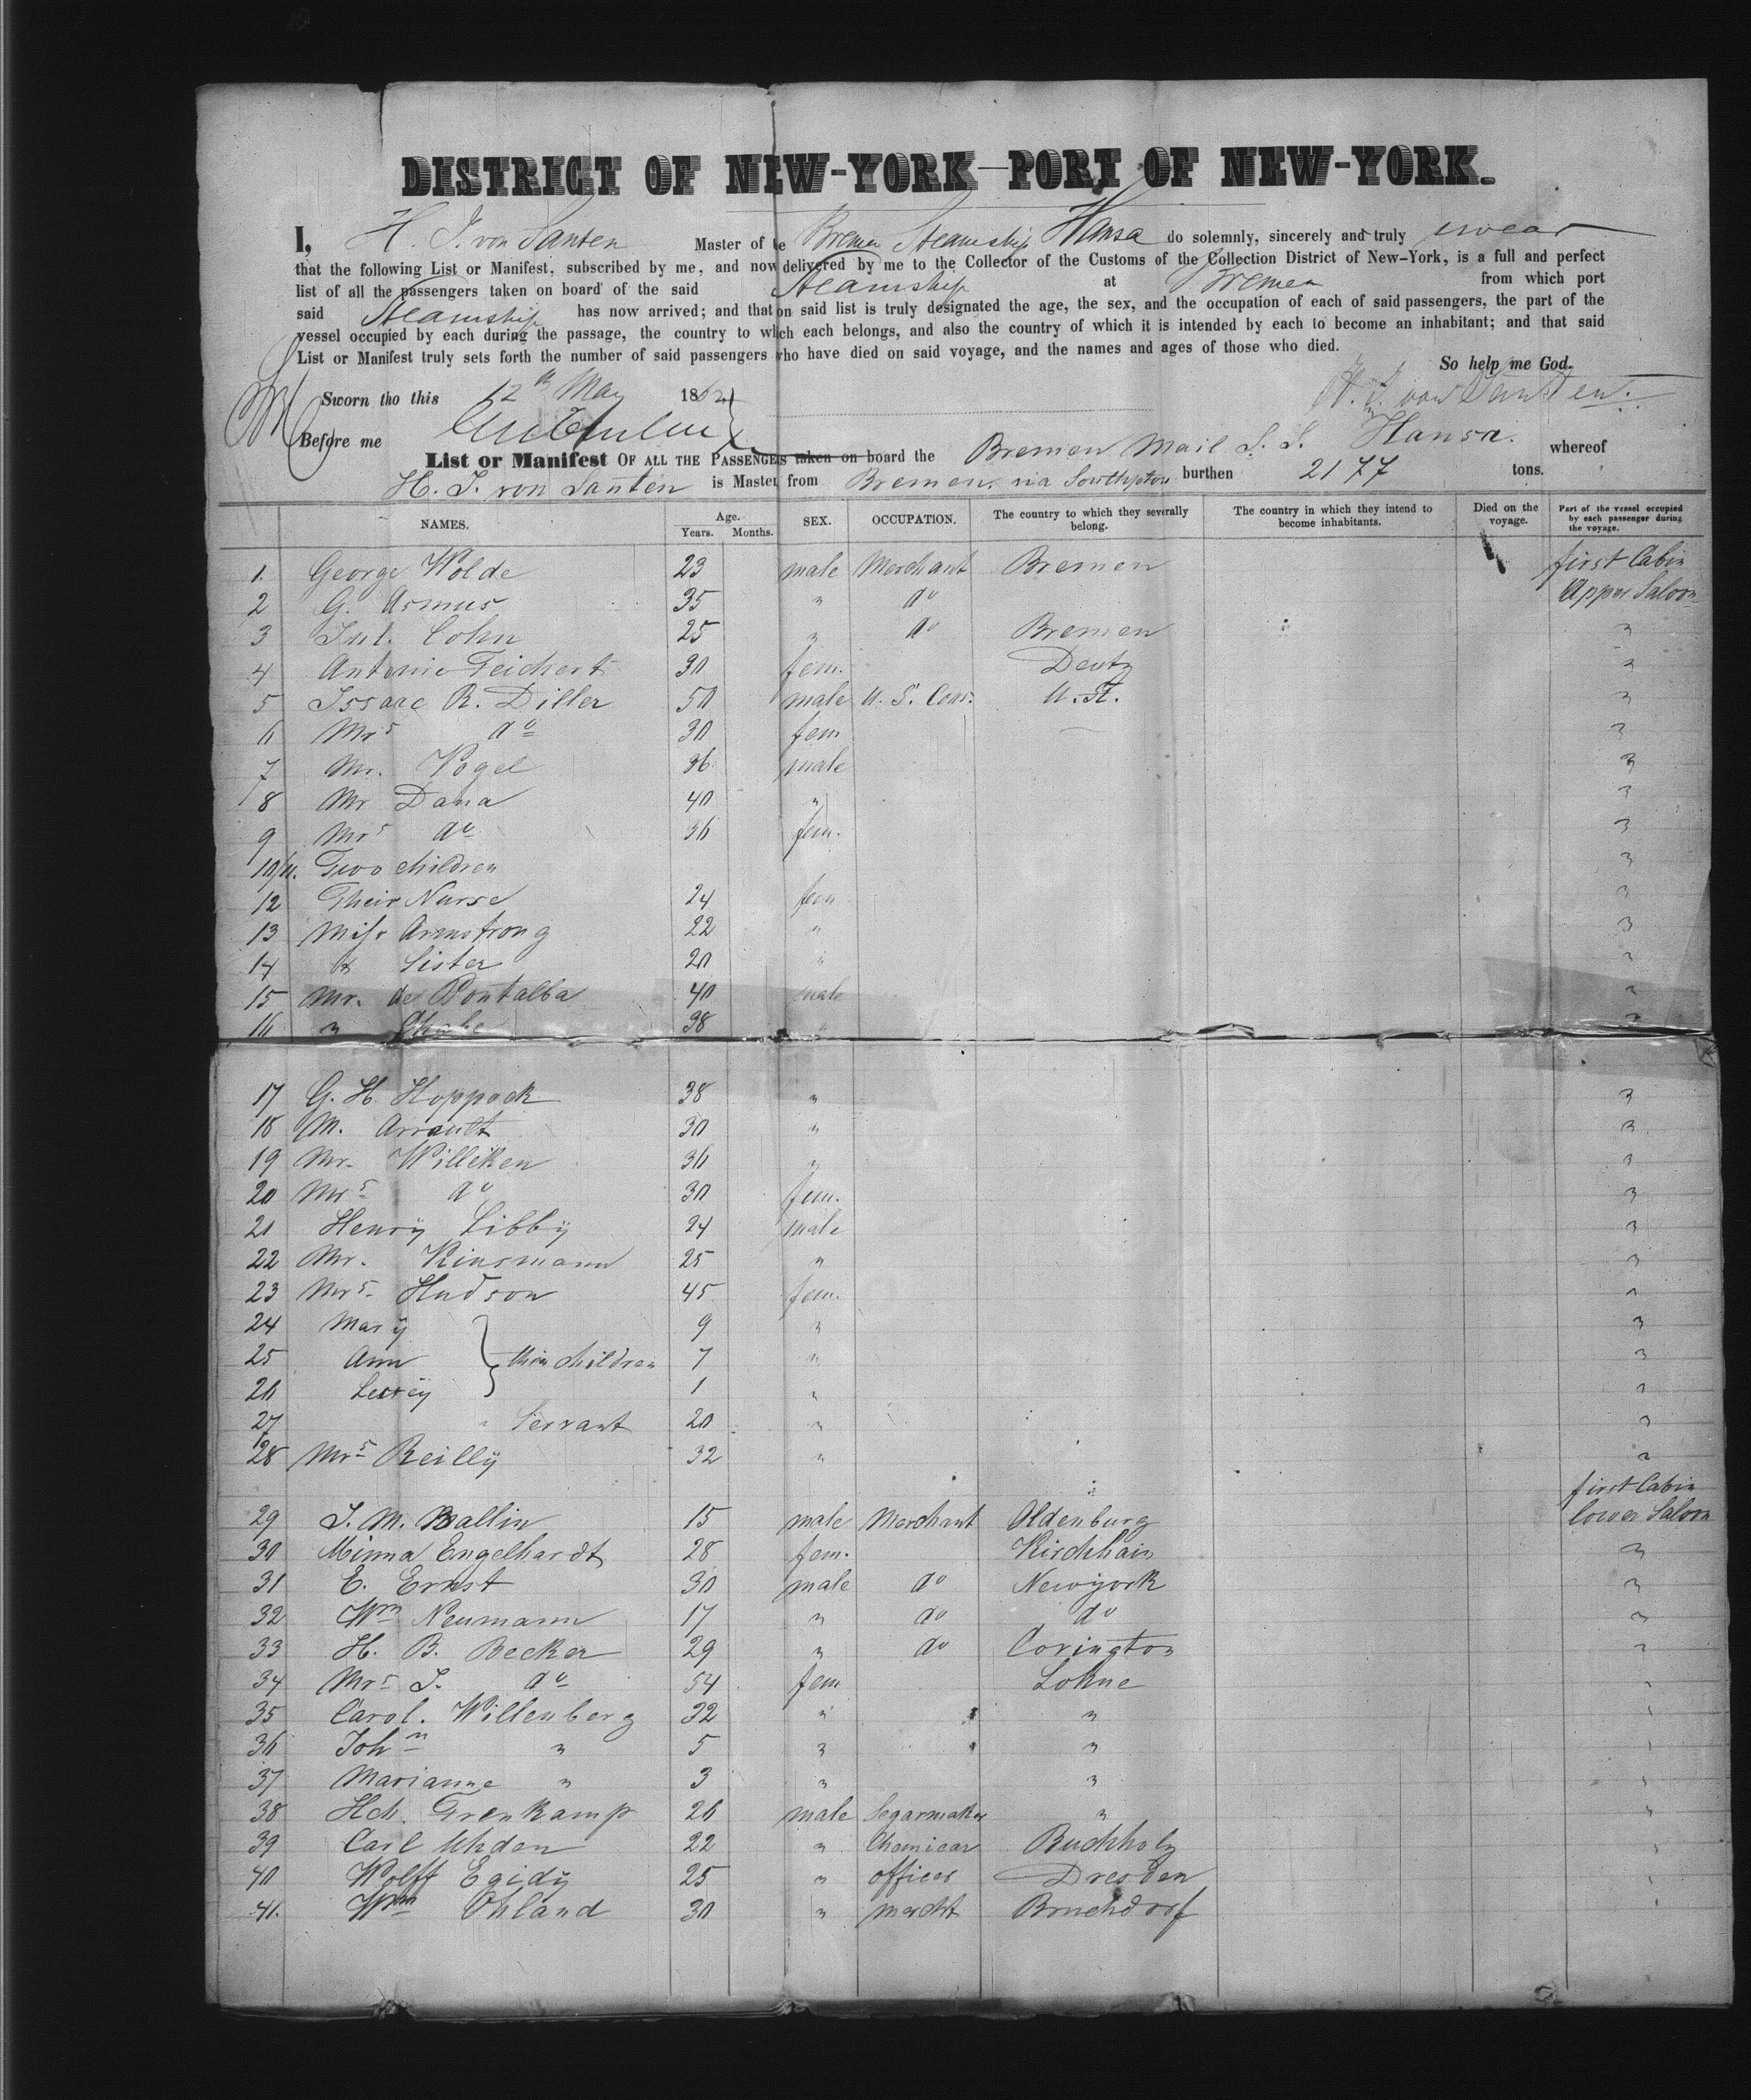 DISTRICT OF NEW-YORK—PORT OF NEW-YORK.
I, H. J. von Santen Master of the Bremen Steamship Hansa do solemnly, sincerely and truly swear
that the following List or Manifest, subscribed by me, and now delivered by me to the Collector of the Customs of the Collection District of New-York, is a full and perfect
list of all the passengers taken on board of the said Steamship at Bremen from which port
said Steamship has now arrived; and that on said list is truly designated the age, the sex, and the occupation of each of said passengers, the part of the
vessel occupied by each during the passage, the country to which each belongs, and also the country of which it is intended by each to become an inhabitant; and that said
List or Manifest truly sets forth the number of said passengers who have died on said voyage, and the names and ages of those who died.
So help me God.
Sworn tho this 12th May 1862 H. J. von Santen.
Before me
List or Manifest OF ALL THE PASSENGERS taken on board the Bremen Mail S. S. Hansa. whereof
H. J. von Santen is Master, from Bremen via Southpton burthen 2177 tons.
NAMES. Age. Years. Months. SEX. OCCUPATION. The country to which they severally belong. The country in which they intend to become inhabitants. Died on the voyage. Part of the vessel occupied by each passenger during the voyage.
1. George Wolde 23 male Merchant Bremen first Cabin
2 G. Asmus 35 " do Upper Saloon
3 Jul. Cohn 25 " do Bremen "
4 Antonie Teichert 30 fem. Deutz "
5 Issaac R. Diller 50 male U. S. Cons. U. St. "
6 Mrs do 30 fem — "
7 Mr. Vogel 36 male "
8 Mr Dana 40 " "
9 Mrs do 36 fem. "
10/11. Two children "
12 Their Nurse 24 fem "
13 Miss Armstrong 22 " "
14 & Sister 20 " "
15 Mr. de Pontalba 40 male "
16 " 38 " "
17 G. H. Hoppock 38 " "
18 M. Arrault 30 " "
19 Mr. Williken 36 " "
20 Mrs do 30 fem. "
21 Henry Libby 24 male "
22 Mr. Kinsmann 25 " "
23 Mrs Hudson 45 fem. "
24 Mary 9 " "
25 Ann } their children 7 " "
26 1 " "
27 " Servant 20 " "
28 Mrs Reilly 32 " "
first Cabin
29 J. M. Ballin 15 male Merchant Oldenburg lower Saloon
30 Minna Engelhardt 28 fem. Kirchhain "
31 E. Ernst 30 male do Newyork "
32 Wm Neumann 17 " do do "
33 H. B. Becker 29 " do Covington "
34 Mrs J. do 54 fem Lohne "
35 Carol. Willenberg 32 " " "
36 John " 5 " " "
37 Marianne " 3 " " "
38 Hch. Trenkamp 26 male Segarmaker " "
39 Carl Uhden 22 " Chemicar Buchholz "
40 Wolff Egidy 25 " officer Dresden "
41. Wm Ohland 30 " mercht Bruchdorf "